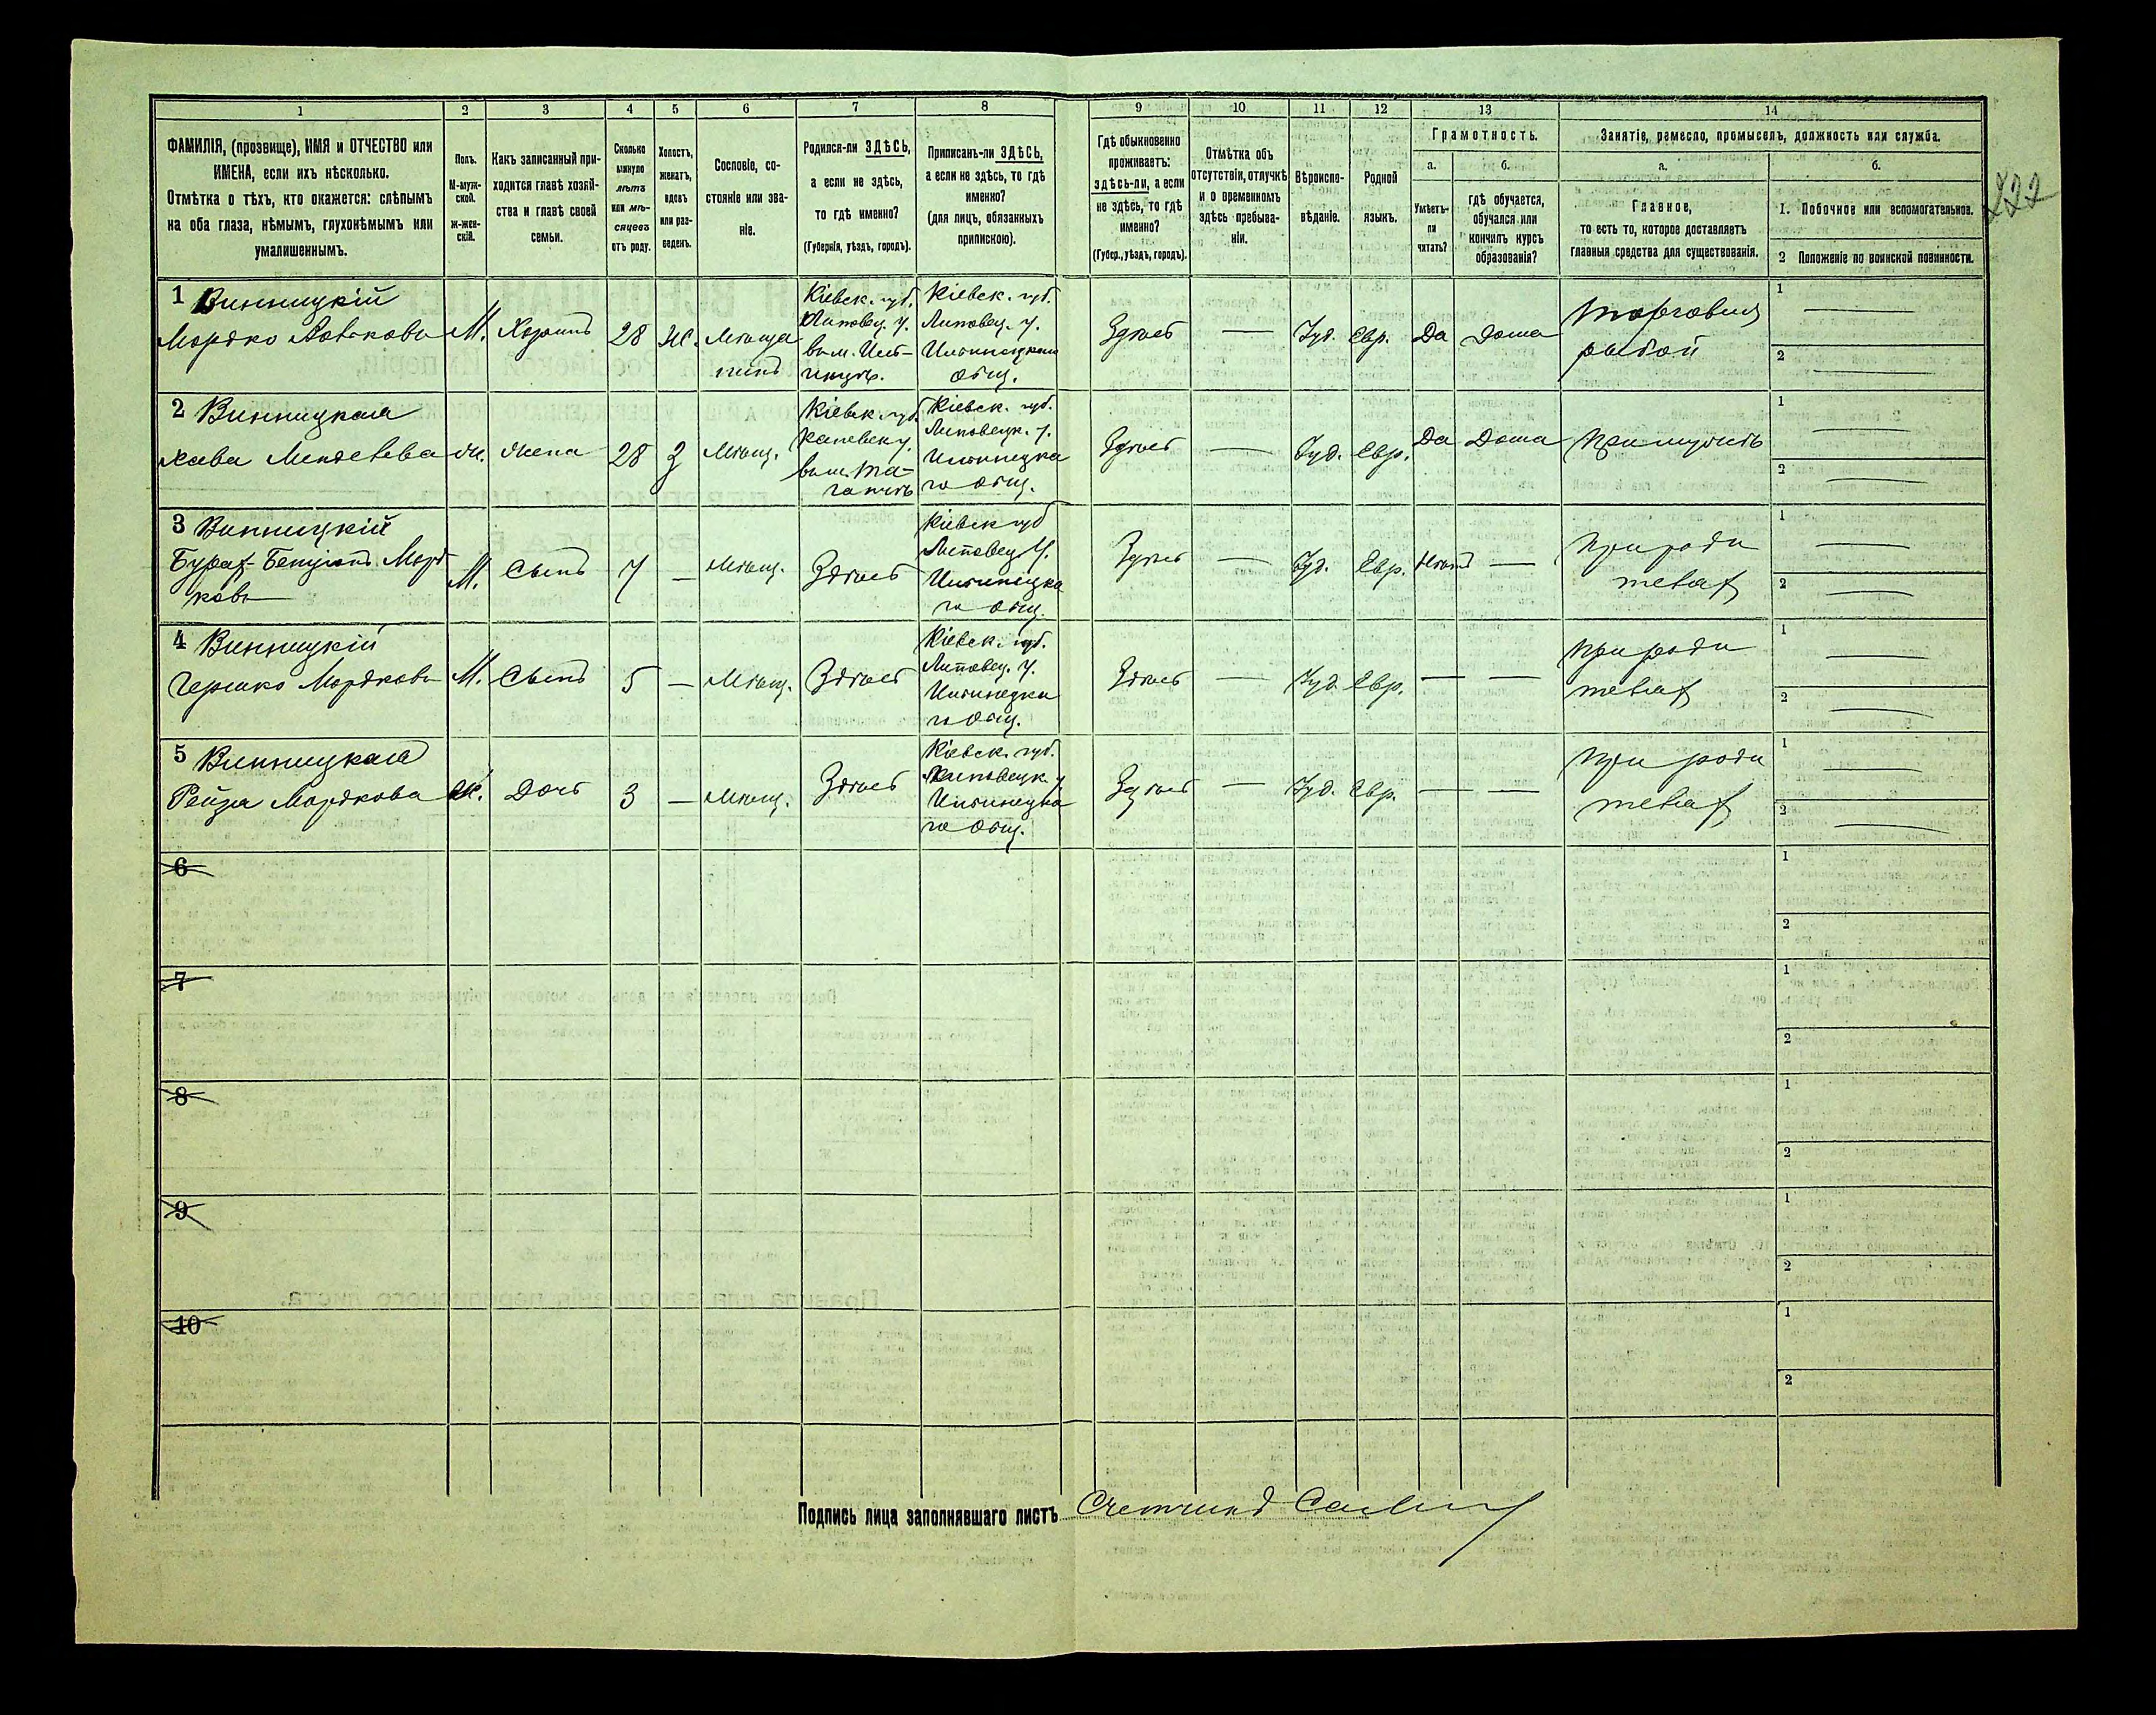 1 2 3 4 5 6 7 8 9 10 11 12 13 14
ФАМИЛІЯ, (прозвище), ИМЯ и ОТЧЕСТВО или
ИМЕНА, если ихъ нѣсколько.
Отмѣтка о тѣхъ, кто окажется: слѣпымъ
на оба глаза, нѣмымъ, глухонѣмымъ или
умалишеннымъ.
Полъ.
М-муж-
ской.
ж-жен-
скій.
Какъ записанный при-
ходится главѣ хозяй-
ства и главѣ своей
семьи.
Сколько
минуло
лѣтъ
или мѣ-
сяцевъ
отъ роду.
Холостъ,
женатъ,
вдовъ
или раз-
веденъ.
Сословіе, со-
стояніе или зва-
ніе.
Родился-ли ЗДѢСЬ,
а если не здѣсь,
то гдѣ именно?
(Губернія, уѣздъ, городъ).
Приписанъ-ли ЗДѢСЬ,
а если не здѣсь, то гдѣ
именно?
(для лицъ, обязанныхъ
припискою).
Гдѣ обыкновенно
проживаетъ:
здѣсь-ли, а если
не здѣсь, то гдѣ
именно?
(Губер., уѣздъ, городъ).
Отмѣтка объ
отсутствіи, отлучкѣ
и о временномъ
здѣсь пребыва-
ніи.
Вѣроиспо-
вѣданіе.
Родной
языкъ.
Грамотность.
а.
Умѣетъ-
ли
читать?
б.
гдѣ обучается,
обучался или
кончилъ курсъ
образованія?
Занятіе, ремесло, промыселъ, должность или служба.
а.
Главное,
то есть то, которое доставляетъ
главныя средства для существованія.
б.
1. Побочное или вспомогательное.
2 Положеніе по воинской повинности.
222
1 Винницкій
Мордко
М. Хозяинъ 28 Ж.
Кіевск. губ.
Липовец. у.
Кіевск. губ.
Липовец. у.
общ.
Здѣсь — Іуд. Евр. Да Дома
Торговля
рыбой
1 —
2 —
2 Винницкая
Хава
ж. Жена 28 З Мѣщ.
Кіевск. губ.
Кіевск. губ.
Липовецк. у.
го общ.
Здѣсь — Іуд. Евр. Да Дома
1 —
2 —
3 Винницкій
М. Сынъ 7 — Мѣщ. Здѣсь
Кіевск губ
Липовец у.
го общ.
Здѣсь — Іуд. Евр. Нѣтъ —
При роди
теляхъ
1 —
2 —
4 Винницкій
Гершко Мордковъ
М. Сынъ 5 — Мѣщ. Здѣсь
Кіевск. губ.
Липовец. у.
го общ.
Здѣсь — Іуд. Евр. — —
При роди
теляхъ
1 —
2 —
5 Винницкая
Рейза Мордкова
Ж. Дочь 3 — Мѣщ. Здѣсь
Кіевск. губ.
Липовецк. у
го общ.
Здѣсь — Іуд. Евр. — —
При роди
теляхъ
1 —
2 —
6
1
2
7
1
2
8
1
2
9
1
2
10
1
2
Подпись лица заполнявшаго листъ Счетчикъ